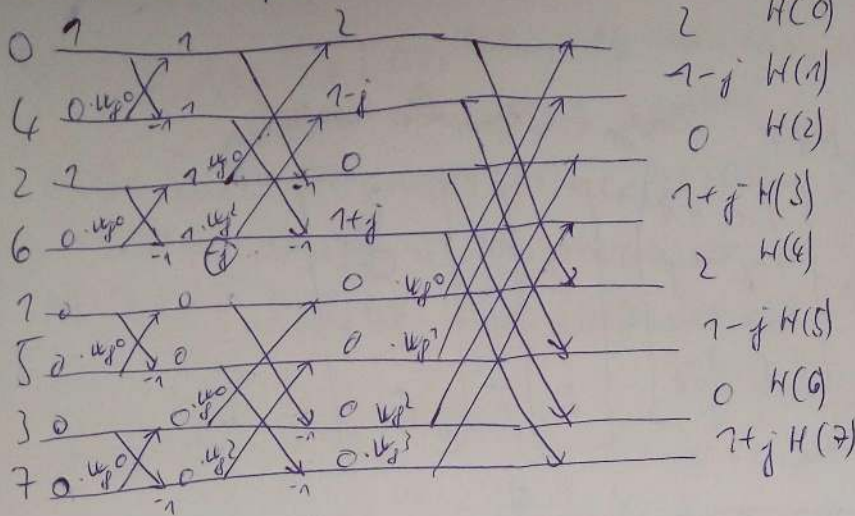 0 1 1 2 2 H(0)
4 0·W8^0 -1 1 1-j 1-j H(1)
2 1 1 W8^0 -1 0 0 H(2)
6 0·W8^0 -1 1·W8^2 -j -1 1+j 1+j H(3)
1 0 0 0·W8^0 2 H(4)
5 0·W8^0 -1 0 0·W8^1 1-j H(5)
3 0 0·W8^0 -1 0 W8^2 0 H(6)
7 0·W8^0 -1 0·W8^2 -1 0·W8^3 1+j H(7)